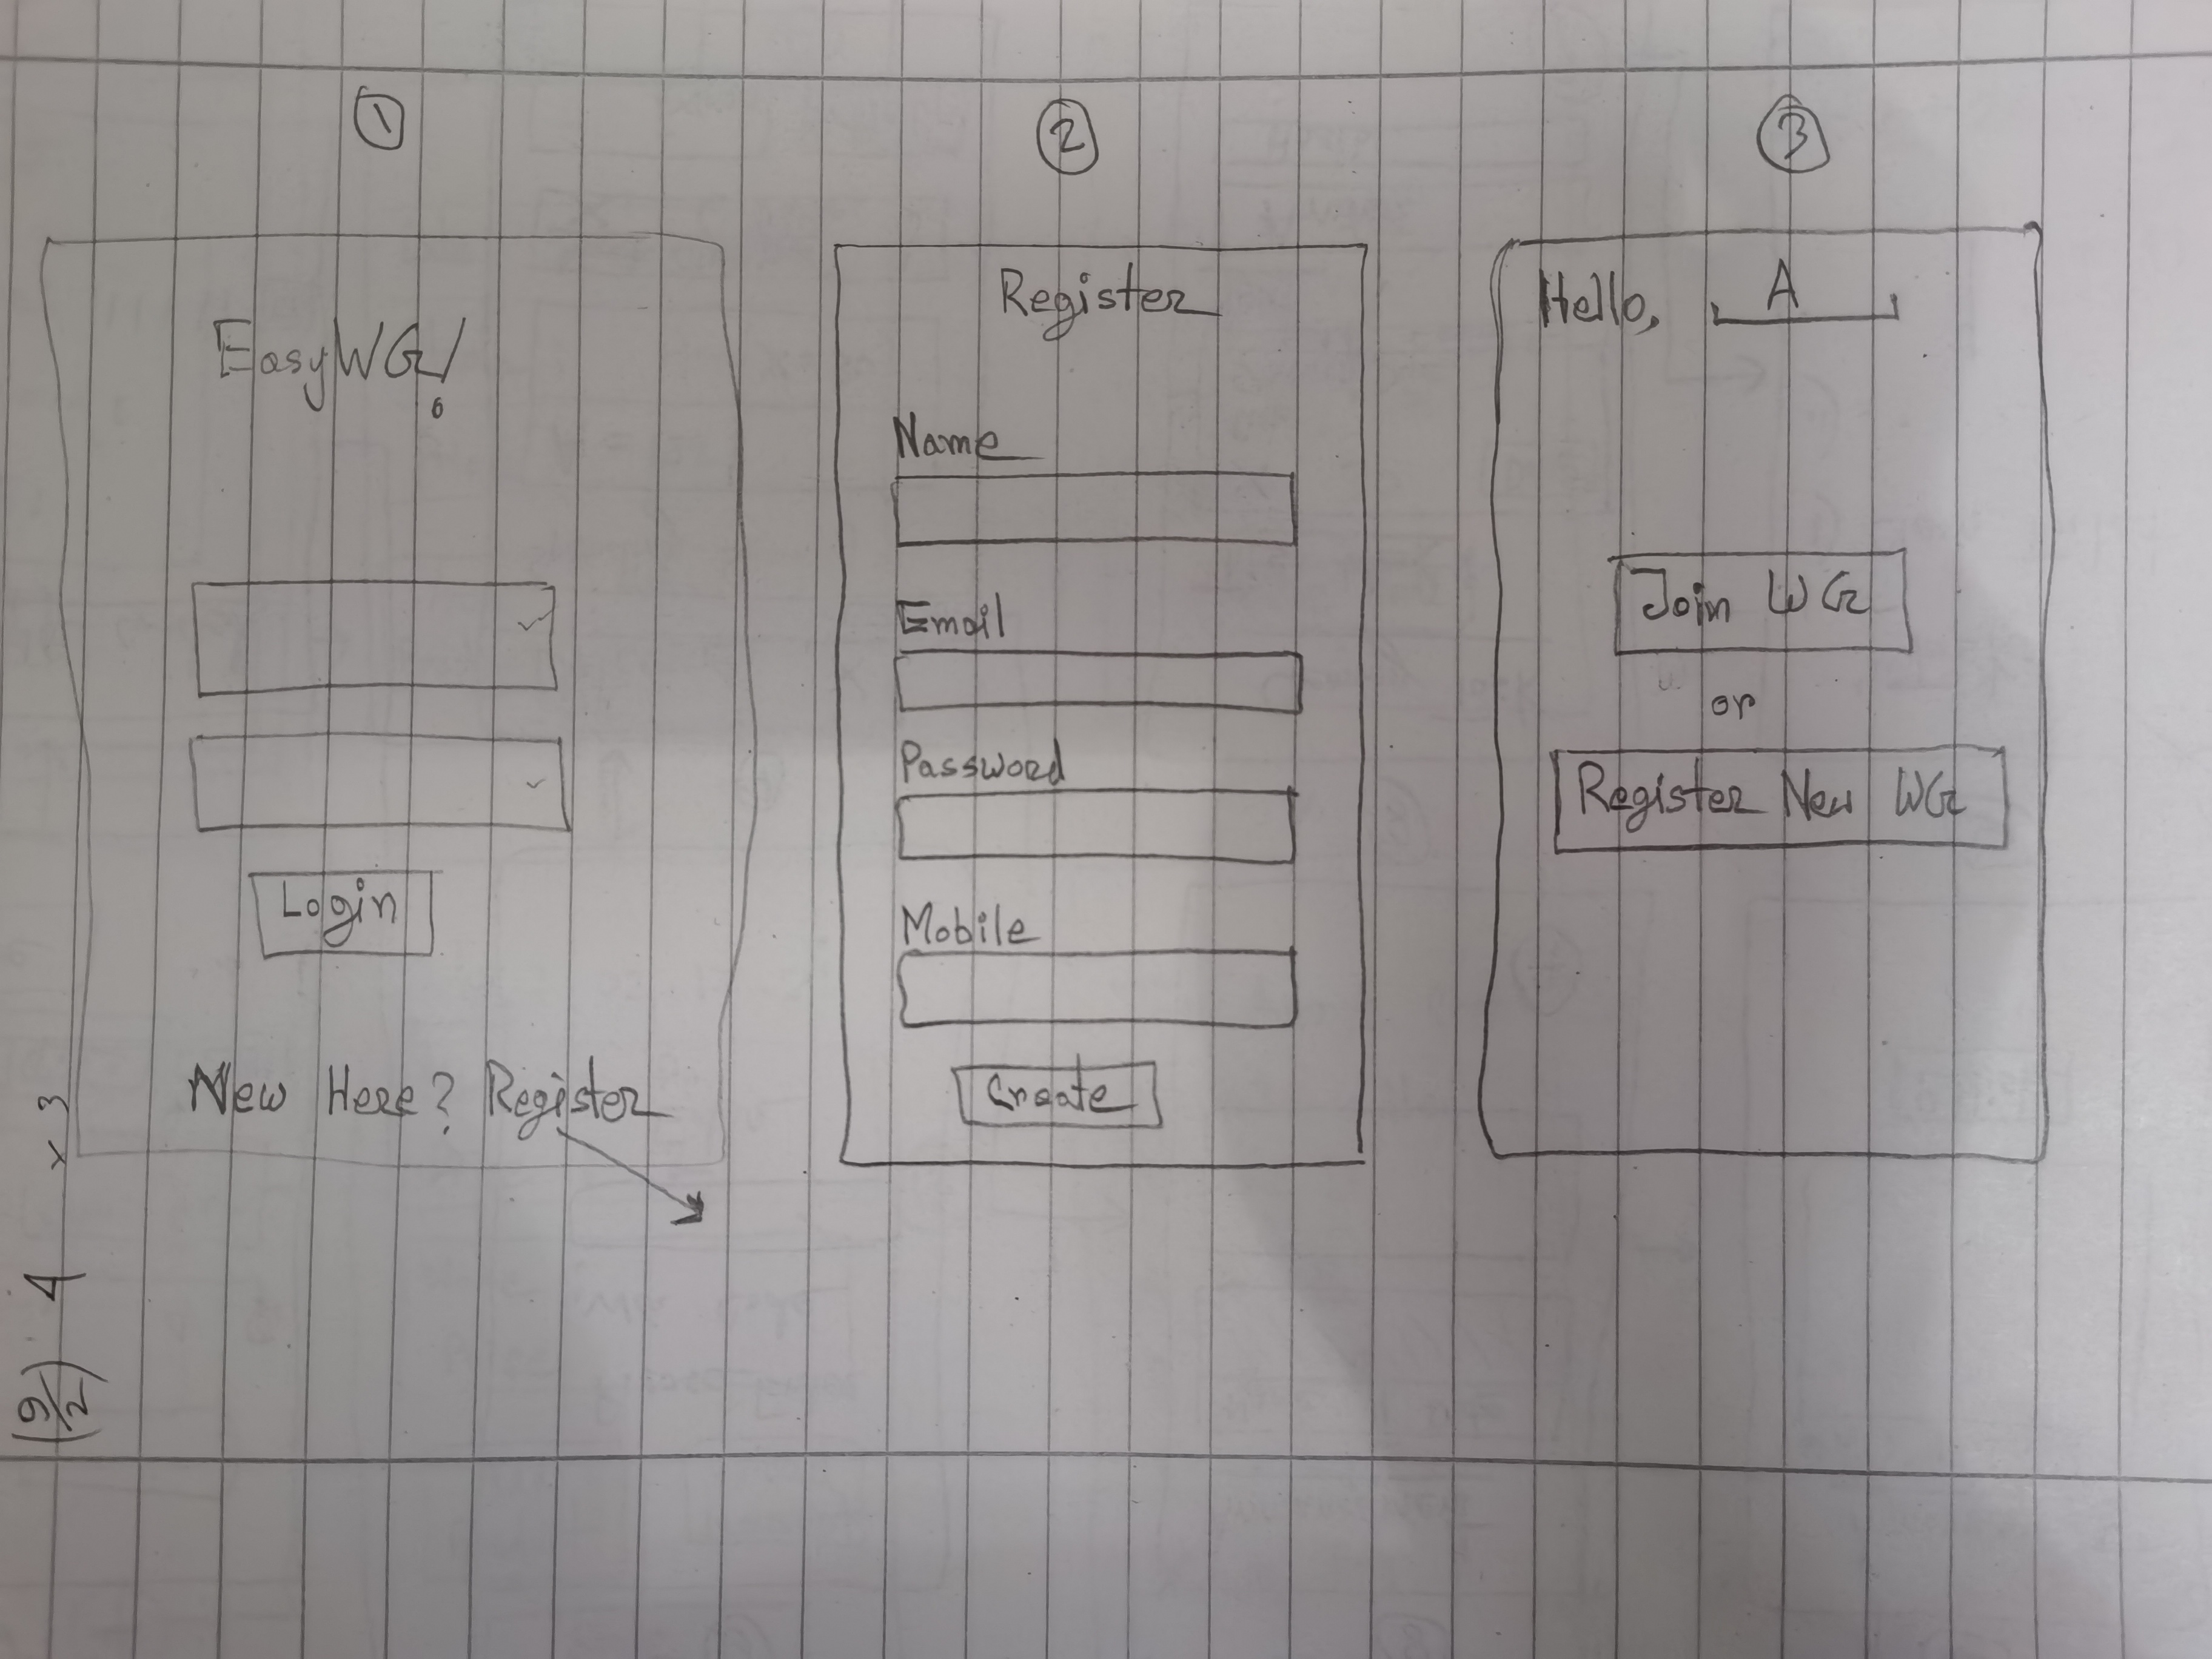 1
EasyWG!
Login
New Here? Register
2
Register
Name
Email
Password
Mobile
Create
3
Hello, A
Join WG
or
Register New WG
(9/2) 4 x 3